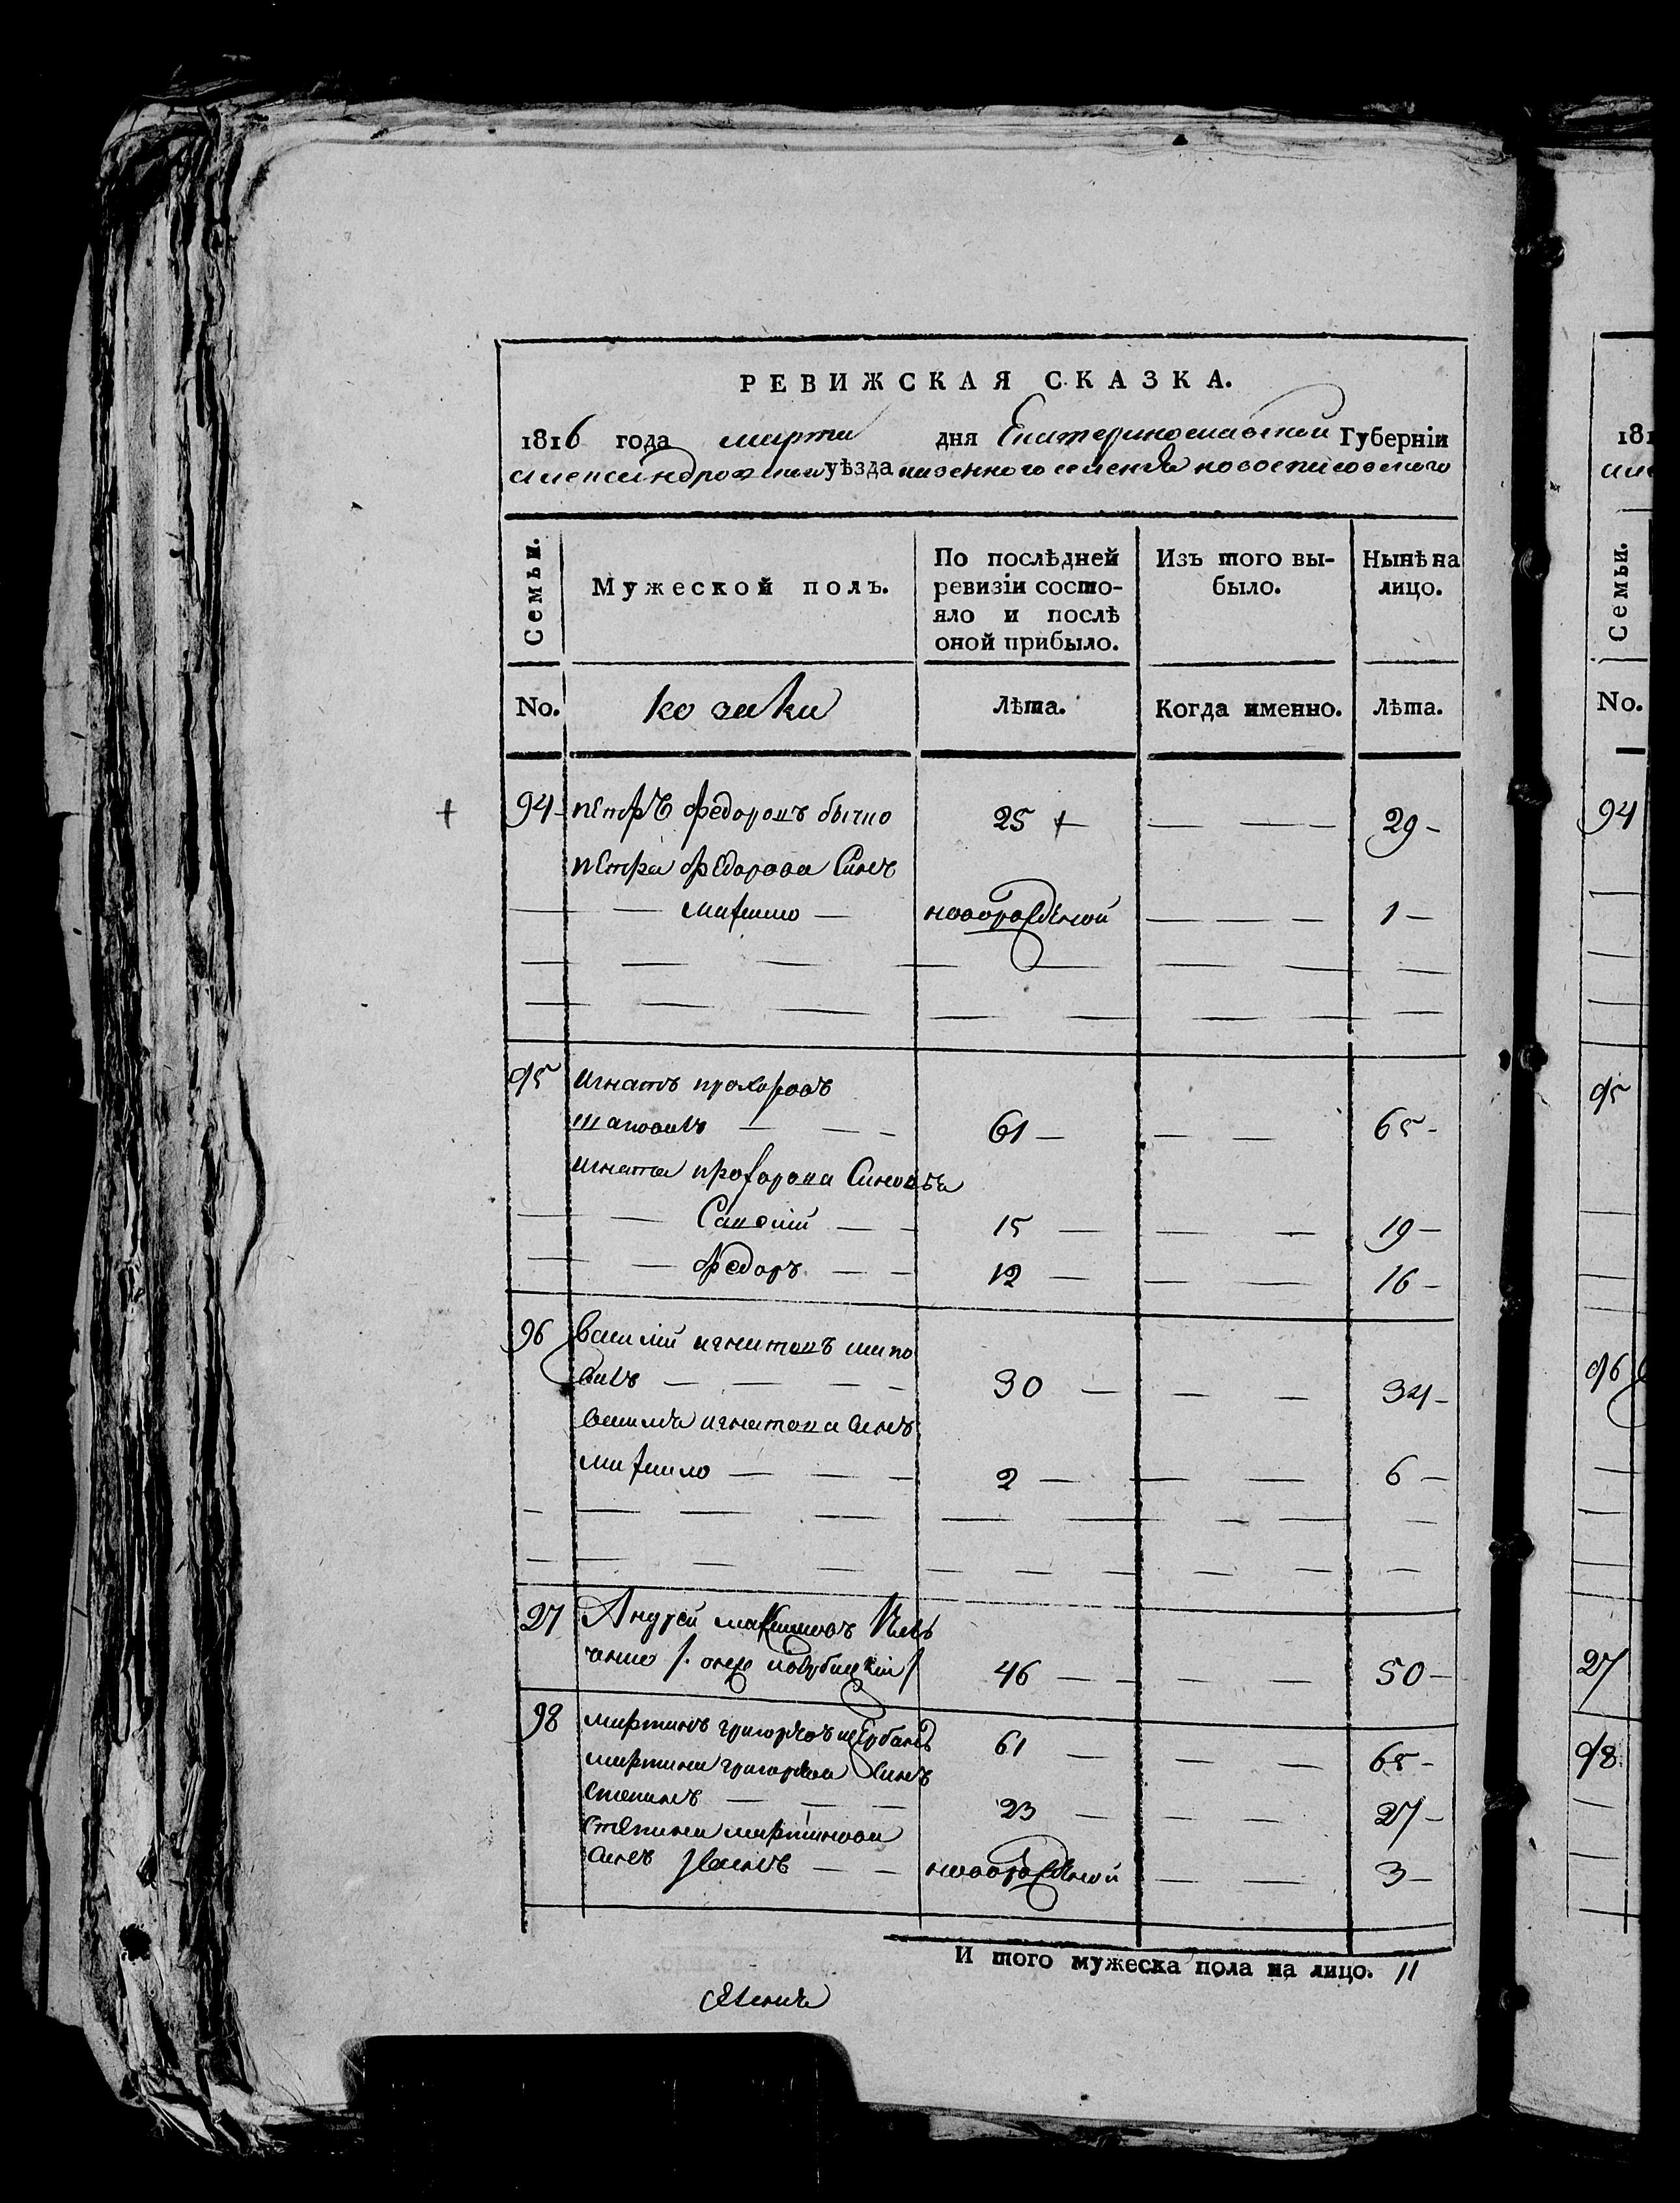 РЕВИЖСКАЯ СКАЗКА.
1816 года марта дня Екатеринославской Губерніи
александровскаго уѣзда казенного селенія новоспасовского
Семьи.
Мужеской полъ.
По послѣдней ревизіи состо-
яло и послѣ
оной прибыло.
Изъ того вы-
было.
Нынѣ на
лицо.
No.
козаки
Лѣта.
Когда именно.
Лѣта.
94 петръ федоровъ бычко 25 29
петра федорова Синъ
михаило новорожденой 1
95 игнатъ прохоровъ
шаповалъ 61 65
игната прохорова Синовья
Савелій 15 19
федоръ 12 16
96 василій игнатовъ шапо
валъ 30 34
василія игнатова Синъ
михаило 2 6
97 Андрей максимовъ
46 50
98 мартинъ григорьевъ щербань 61 65
мартина григорьева Синъ
степанъ 23 27
степана мартинова
Синъ Иванъ новорожденой 3
И того мужеска пола на лицо. 11
181
Семьи.
No.
94
95
96
97
98